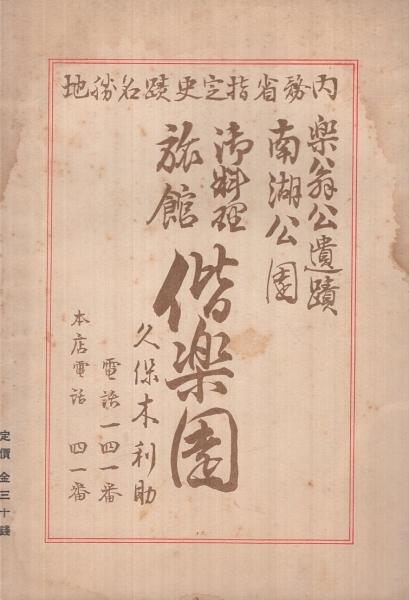 内務省指定史蹟名勝地
楽翁公遺蹟
南湖公園
御料理
旅館
偕楽園
久保木利助
電話一四一番
本店電話 四一番
定價金三十錢